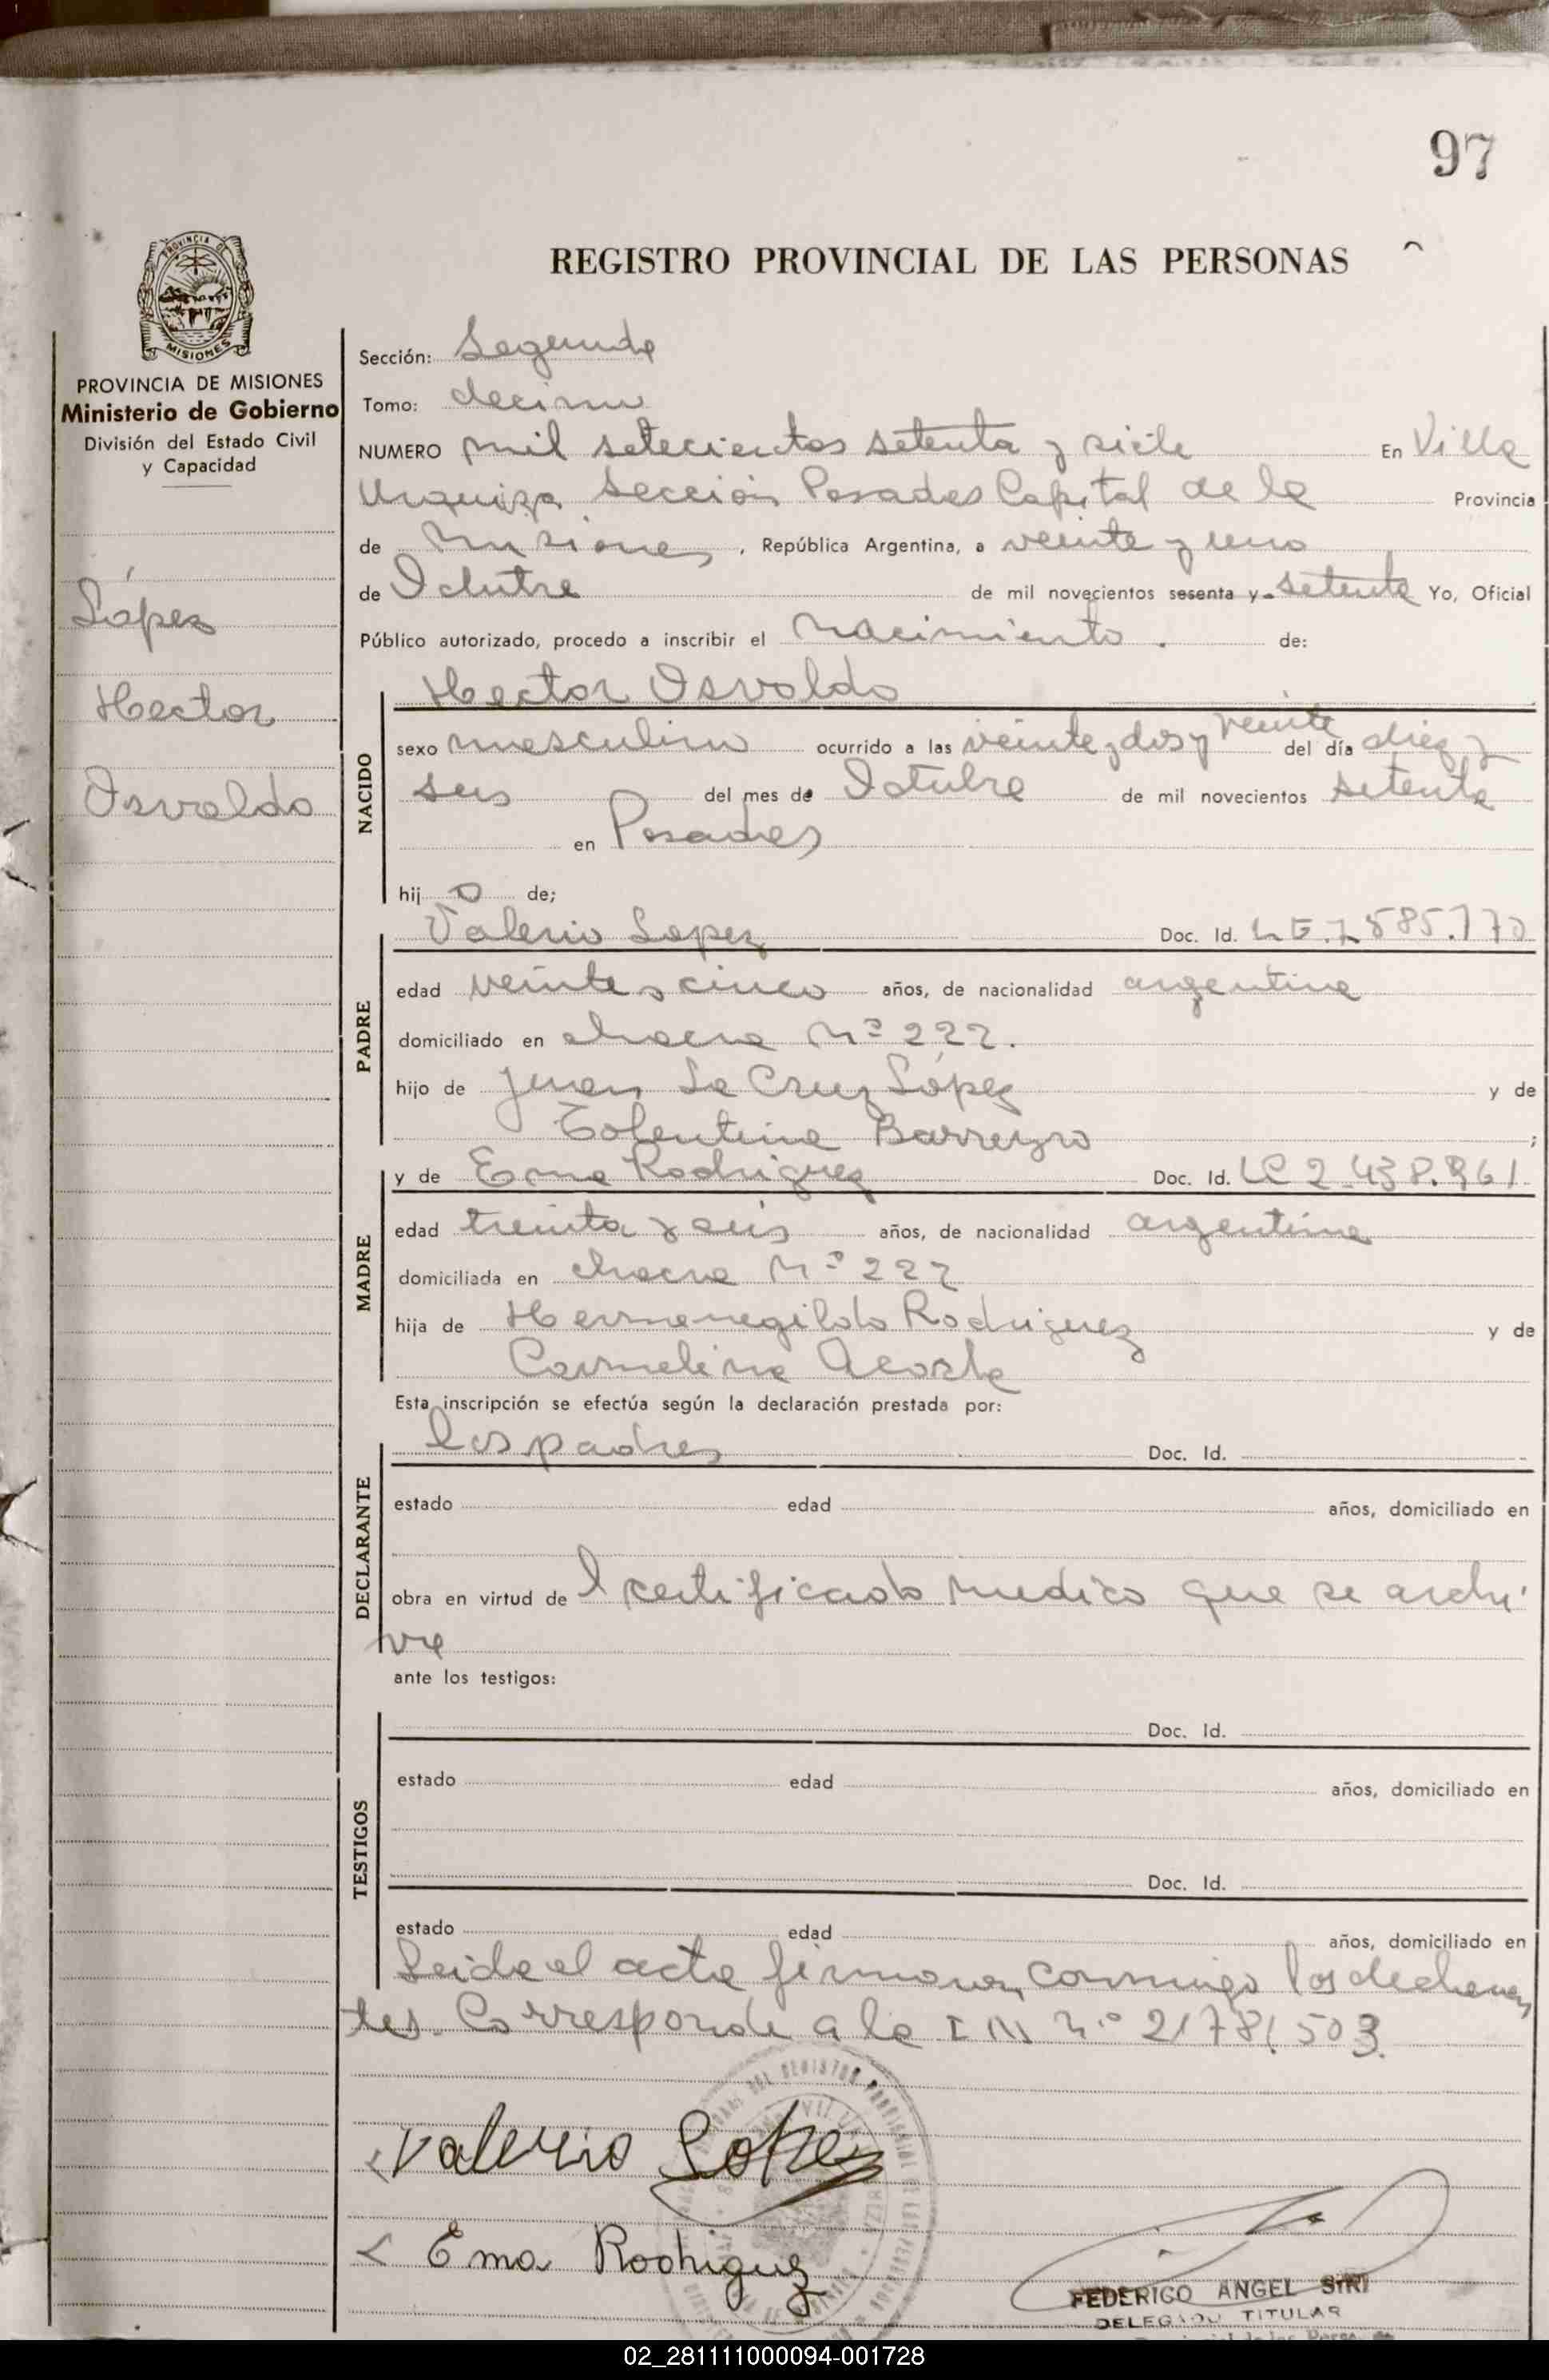 97
REGISTRO PROVINCIAL DE LAS PERSONAS
PROVINCIA DE
MISIONES
PROVINCIA DE MISIONES
Ministerio de Gobierno
División del Estado Civil
y Capacidad
López
Hector
Osvaldo
Sección: Segunda
Tomo: decimo
NUMERO mil setecientos setenta y siete En Villa
Urquiza Sección Posadas Capital de la Provincia
de Misiones, República Argentina, a veinte y uno
de Octubre de mil novecientos sesenta y setenta Yo, Oficial
Público autorizado, procedo a inscribir el nacimiento. de:
Hector Osvaldo
NACIDO
sexo masculino ocurrido a las veinte y dos y veinte del día diez y
seis del mes de Octubre de mil novecientos setenta
en Posadas
hijo de;
Valerio Lopez Doc. Id. L E. 7.585.170
PADRE
edad veinte y cinco años, de nacionalidad argentina
domiciliado en chacra Nº 222.
hijo de Juan La Cruz López y de
Tolentina Barreyro ;
y de Ema Rodriguez Doc. Id. LC 2.438.961
MADRE
edad treinta y seis años, de nacionalidad argentina
domiciliada en chacra Nº 222
hija de Hermenegildo Rodriguez y de
Carmelina Acosta
Esta inscripción se efectúa según la declaración prestada por:
los padres Doc. Id.
DECLARANTE
estado edad años, domiciliado en
obra en virtud de l certificado medico que se archi
va
ante los testigos:
Doc. Id.
TESTIGOS
estado edad años, domiciliado en
Doc. Id.
estado edad años, domiciliado en
Leida el acta firmaron conmigo los declaran
tes. Corresponde a la I M nº 21781503.
Valerio Lopez
Ema Rodriguez
FEDERICO ANGEL SIRI
DELEGADO TITULAR
02_281111000094-001728